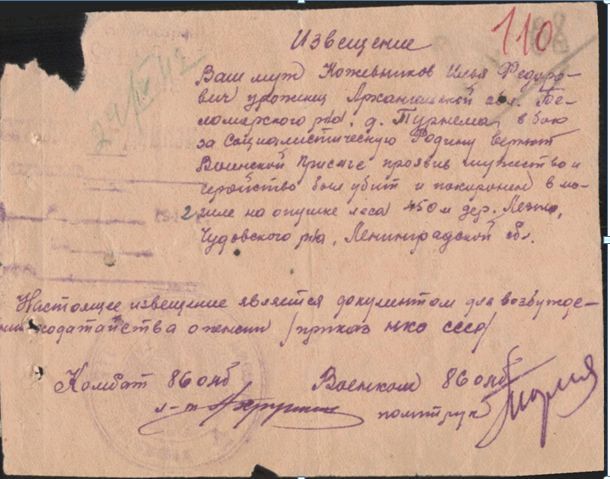 110
Извещение
24/IV 42
Ваш муж Кожевников Илья Федоро-
вич уроженец Архангельской обл. Бе-
ломорского р/на. д. Пурнема, в бою
за Социалистическую Родину верный
Военской Присяге проявив мужество и
геройство был убит и похоронен в мо-
гиле на опушке леса 450м дер.
Чудовского р/на, Ленинградской обл.
Настоящее извещение является документом для возбужде-
ния ходатайства о пенсии /приказ НКО СССР/
Комбат 86 олб Военком 86 олб
л-т политрук